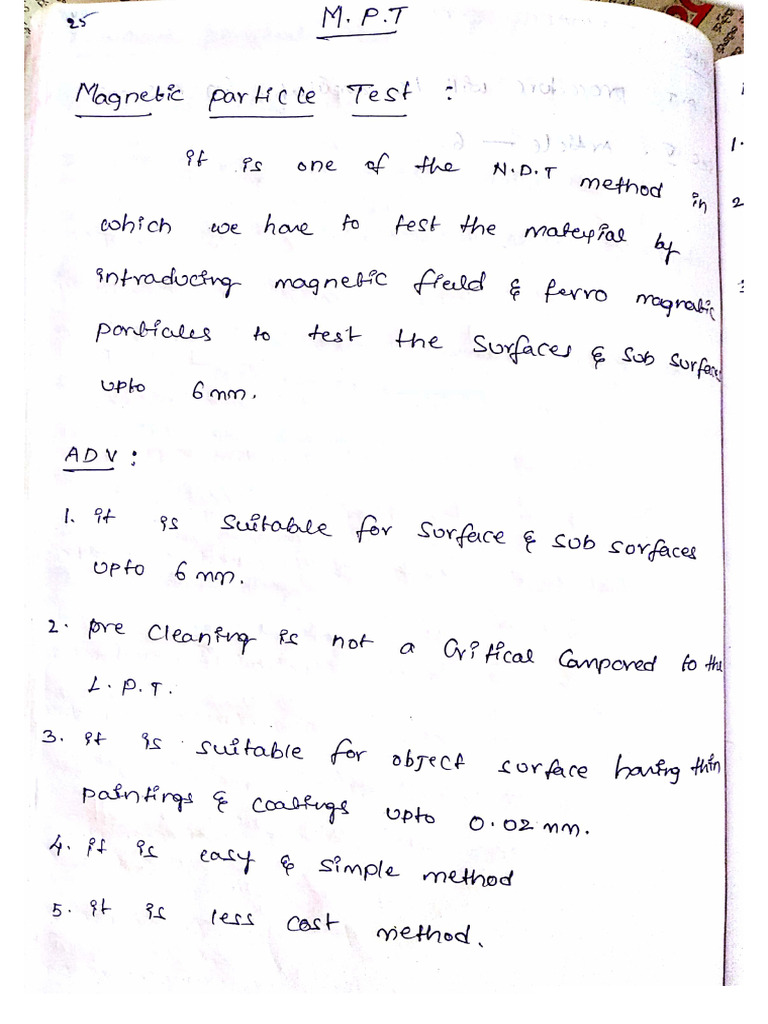 25
M.P.T
Magnetic particle Test :
it is one of the N.D.T method in
which we have to test the material by
intraducing magnetic field & ferro magnatic
particales to test the surfaces & sub surfaces
upto 6mm.
ADV :
1. it is suitable for surface & sub sorfaces
upto 6mm.
2. pre cleaning is not a critical compared to the
L.P.T.
3. it is suitable for object surface having thin
paintings & coatings upto 0.02 mm.
4. it is easy & simple method
5. it is less cost method.
1.
2